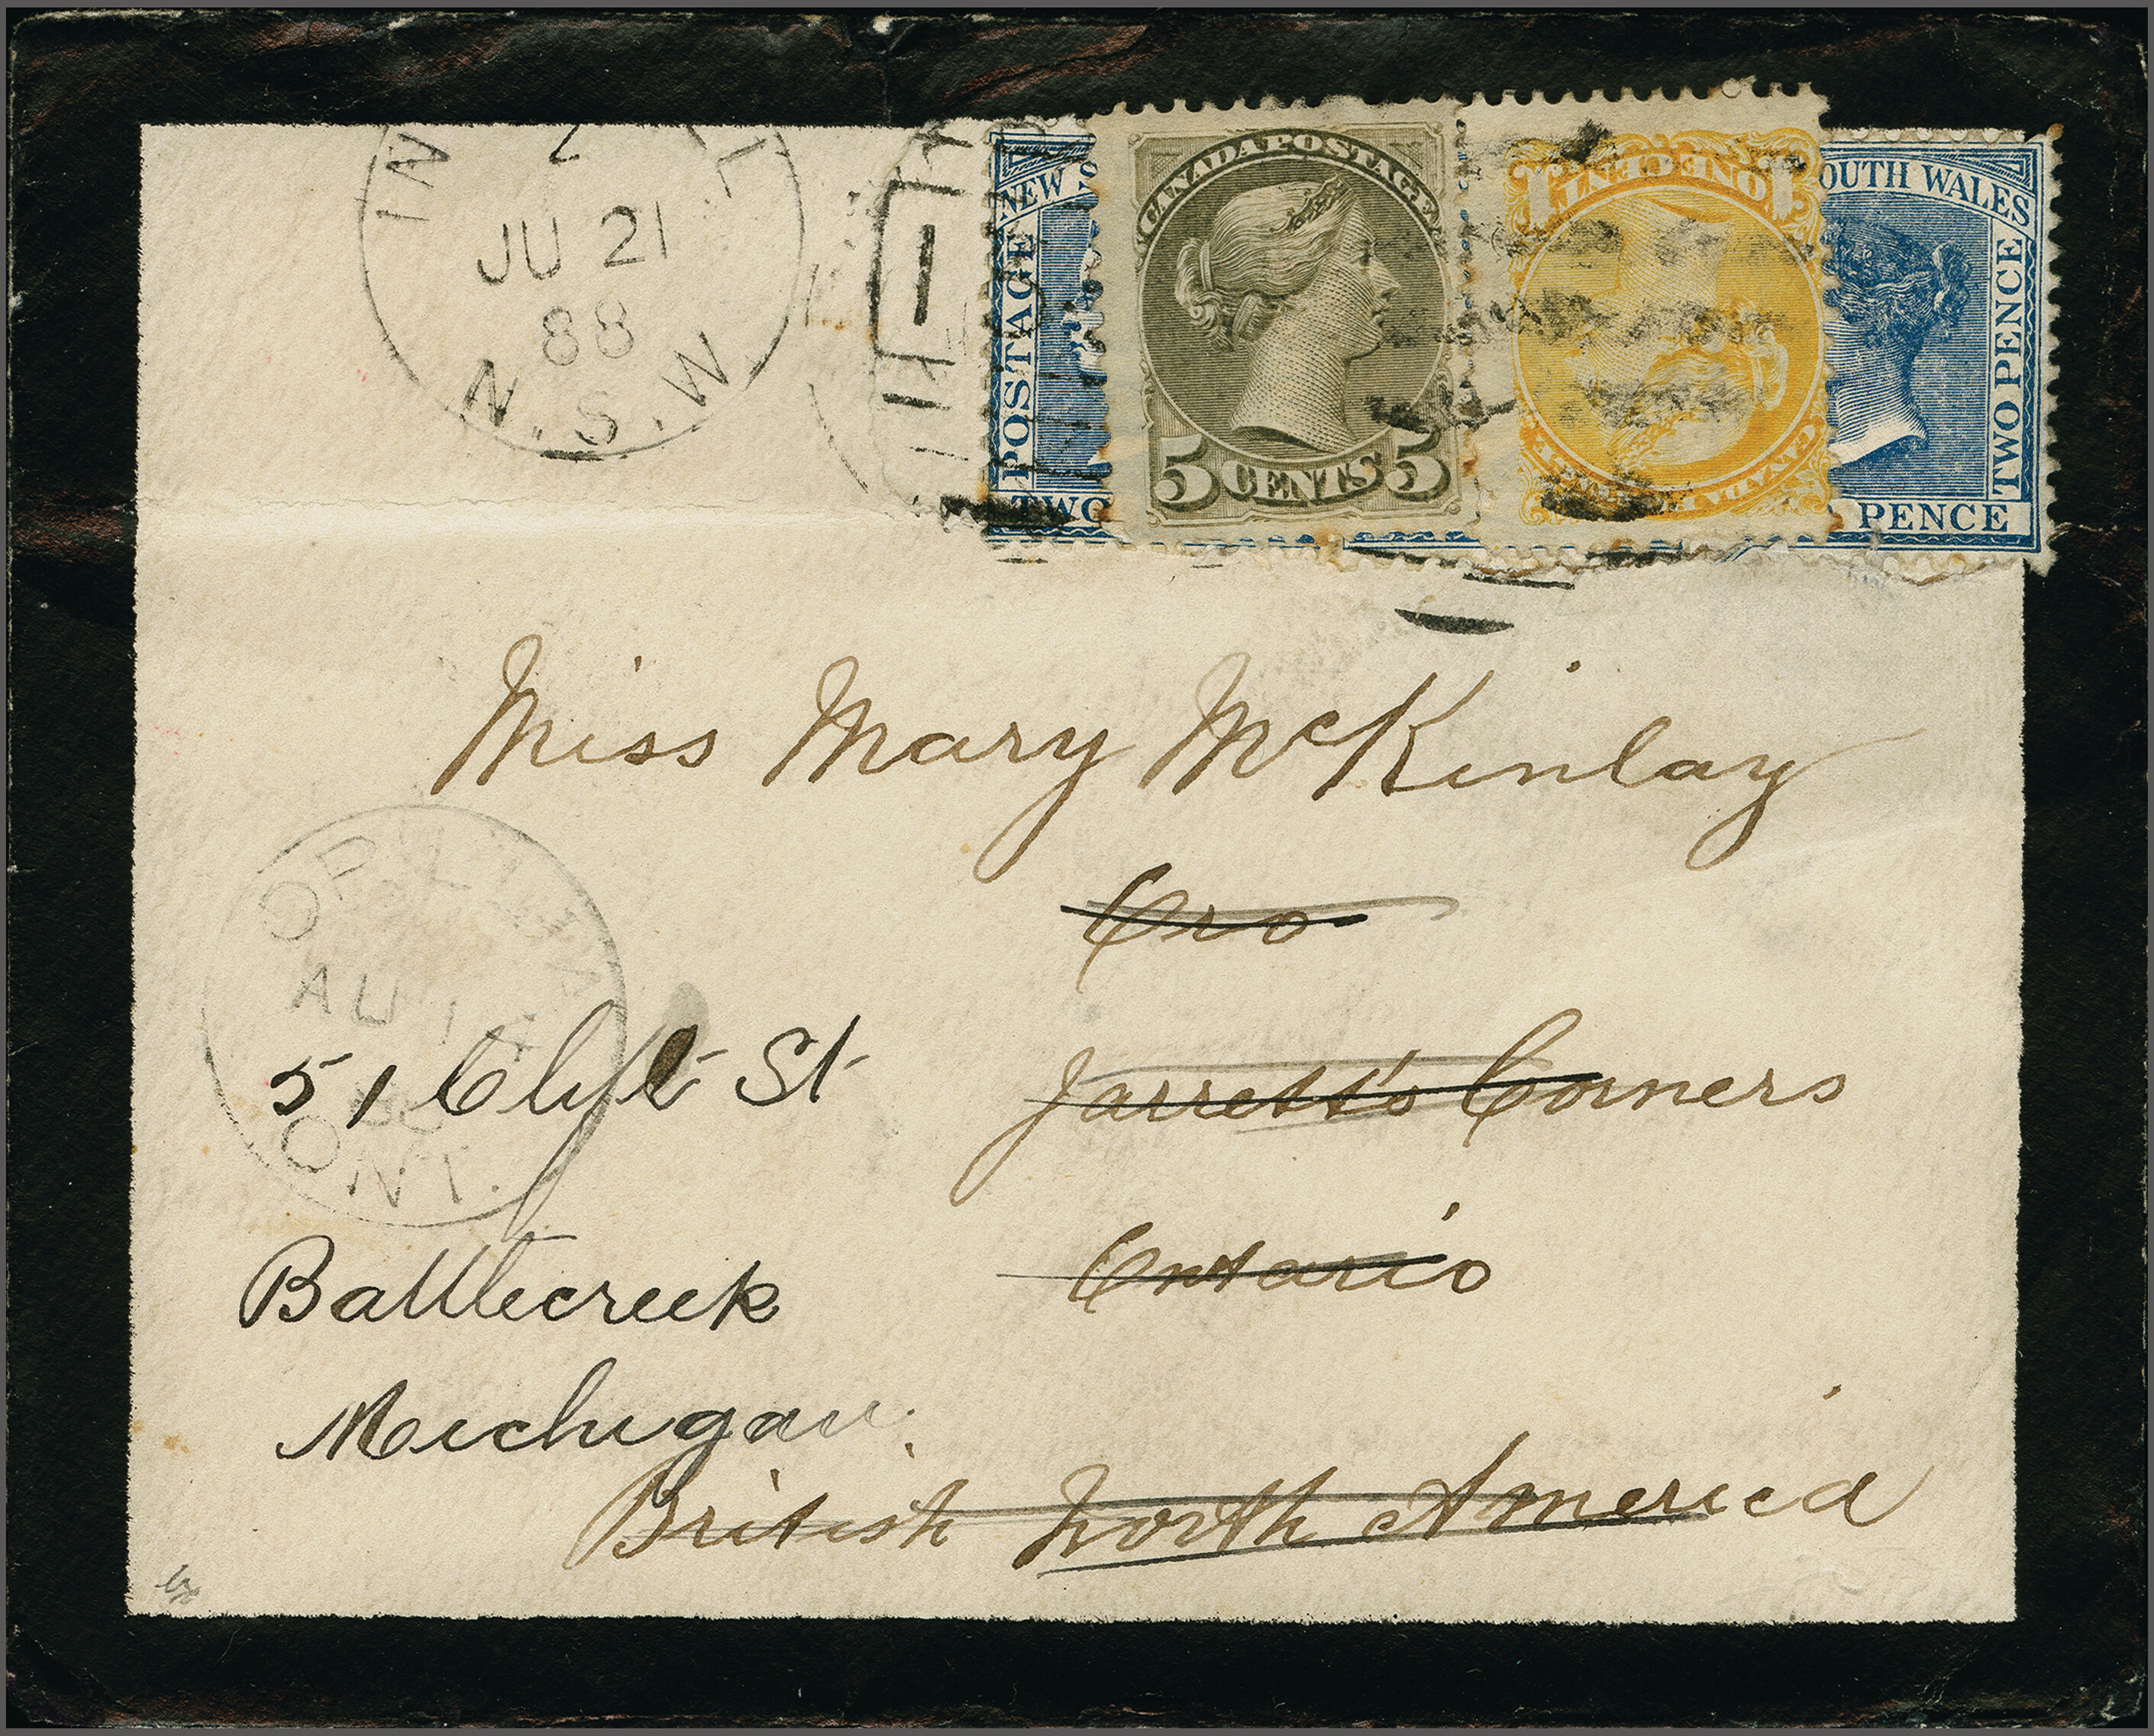 IN L
2
JU 21
88
N.S.W.
NEW SO
POSTAGE
TWO
CANADA POSTAGE
5 CENTS 5
1 ONE CENT 1
CANADA
OUTH WALES
TWO PENCE
PENCE
Miss Mary McKinlay
Oro
Jarrett's Corners
Ontario
British North America
ORILLIA
AU 1
ONT.
51 Clift St
Battlecreek
Michigan.